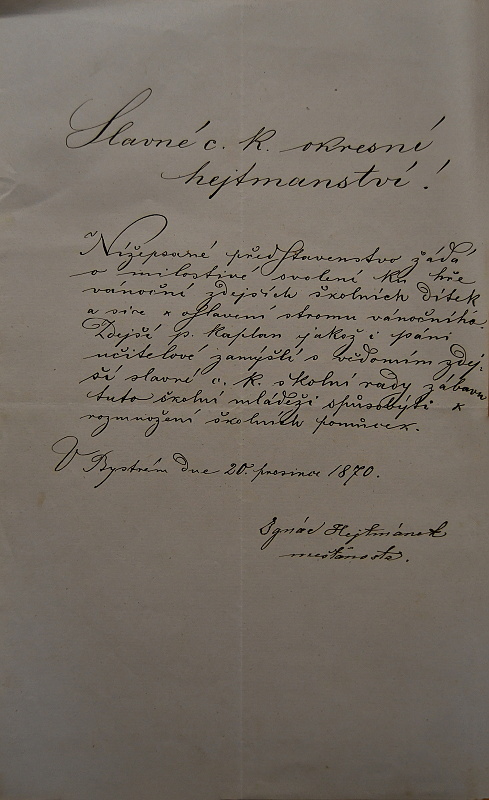 Slavné c. k. okresní
hejtmanství!
Nížepsané představenstvo žádá
o milostivé svolení ku hře
vánoční zdejších školních dítek
a sice k oslavení stromu vánočního.
Zdejší p. kaplan jakož i páni
učitelové zamýšlí s vědomím zdej-
ší slavné c. k. školní rady zábavu
tuto školní mládeži spůsobyti k
rozmnožení školních pomůcek.
V Bystrém dne 20. prosince 1870.
Ignác Hejtmánek
mešťánosta.